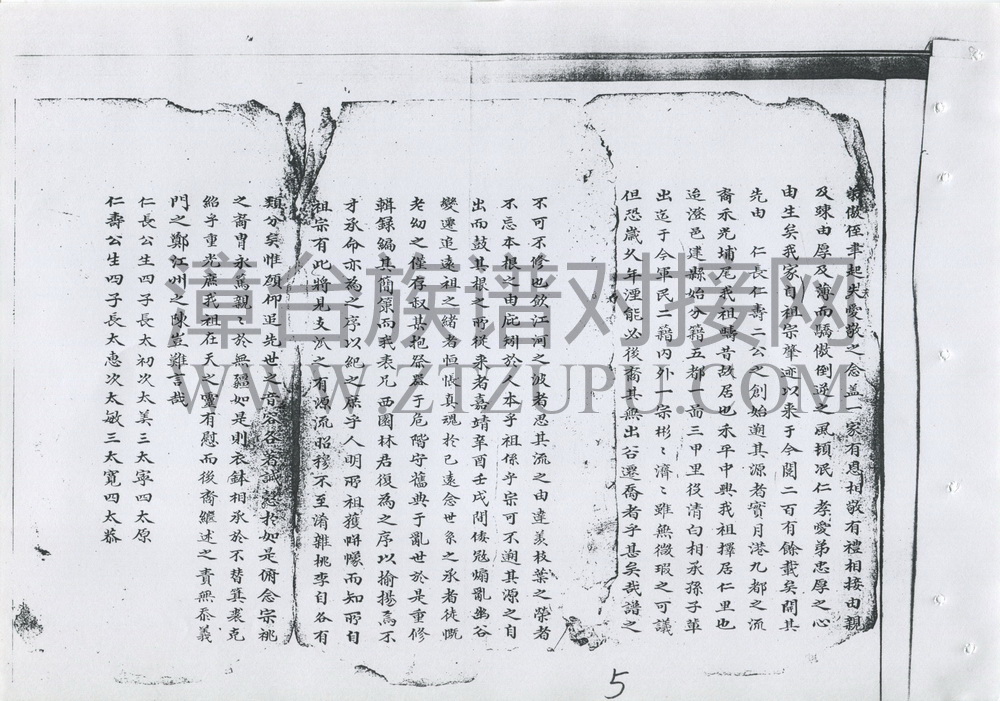 傲侄聿起失愛敬之念蓋一家有恩相敬有禮相接由親
及疎由厚及薄而驕傲倒逆之風頓泯仁孝愛弟忠厚之心
由生矣我家自祖宗肇迹以來于今閱二百有餘載矣閱其
先由 仁長仁壽二公之創始遡其源者實月港九都之流
裔禾芜埔尾我祖疇昔故居也永平中興我祖擇居仁里也
迨澄邑建縣始分籍五都一啚三甲里役清白相承孫子蕃
出迄于今軍民二籍內外一宗彬〻濟〻雖無微瑕之可議
但恐歲久年湮能必後裔其無出谷遷喬者乎甚矣哉譜之
不可不修也欤江河之波者思其流之由達羡枝葉之榮者
不忘本根之由庇矧於人本乎祖係乎宗可不遡其源之自
出而鼓其根之所從來者嘉靖辛酉壬戌間倭冠煽亂幽谷
變遷追遠祖之緒者恒恢真魂於已遠念世系之承者徒慨
老幼之僅存叔其抱祭器于危階守舊典于亂世於是重修
輯録編其簡策而我表兄西園林君復為之序以揄揚焉不
才承命亦為之序以紀之庶乎人明所祖獲帡幪而知所自
祖宗有此將見支派之有源流昭穆不至淆雜桃李自各有
類分矣惟頋仰追先世之音容各若誠
之裔胄永篤親〻於無疆如是則衣鉢相承於不替箕裘克
紹乎重光庶我祖在天之靈有慰而後裔纘述之責無忝義
門之鄭江州之陳豈難言哉
仁長公生四子長太初次太美三太寧四太原
仁壽公生四子長太惠次太敏三太寬四太恭
漳台族谱对接网
WWW.ZTZUPU.COM
5